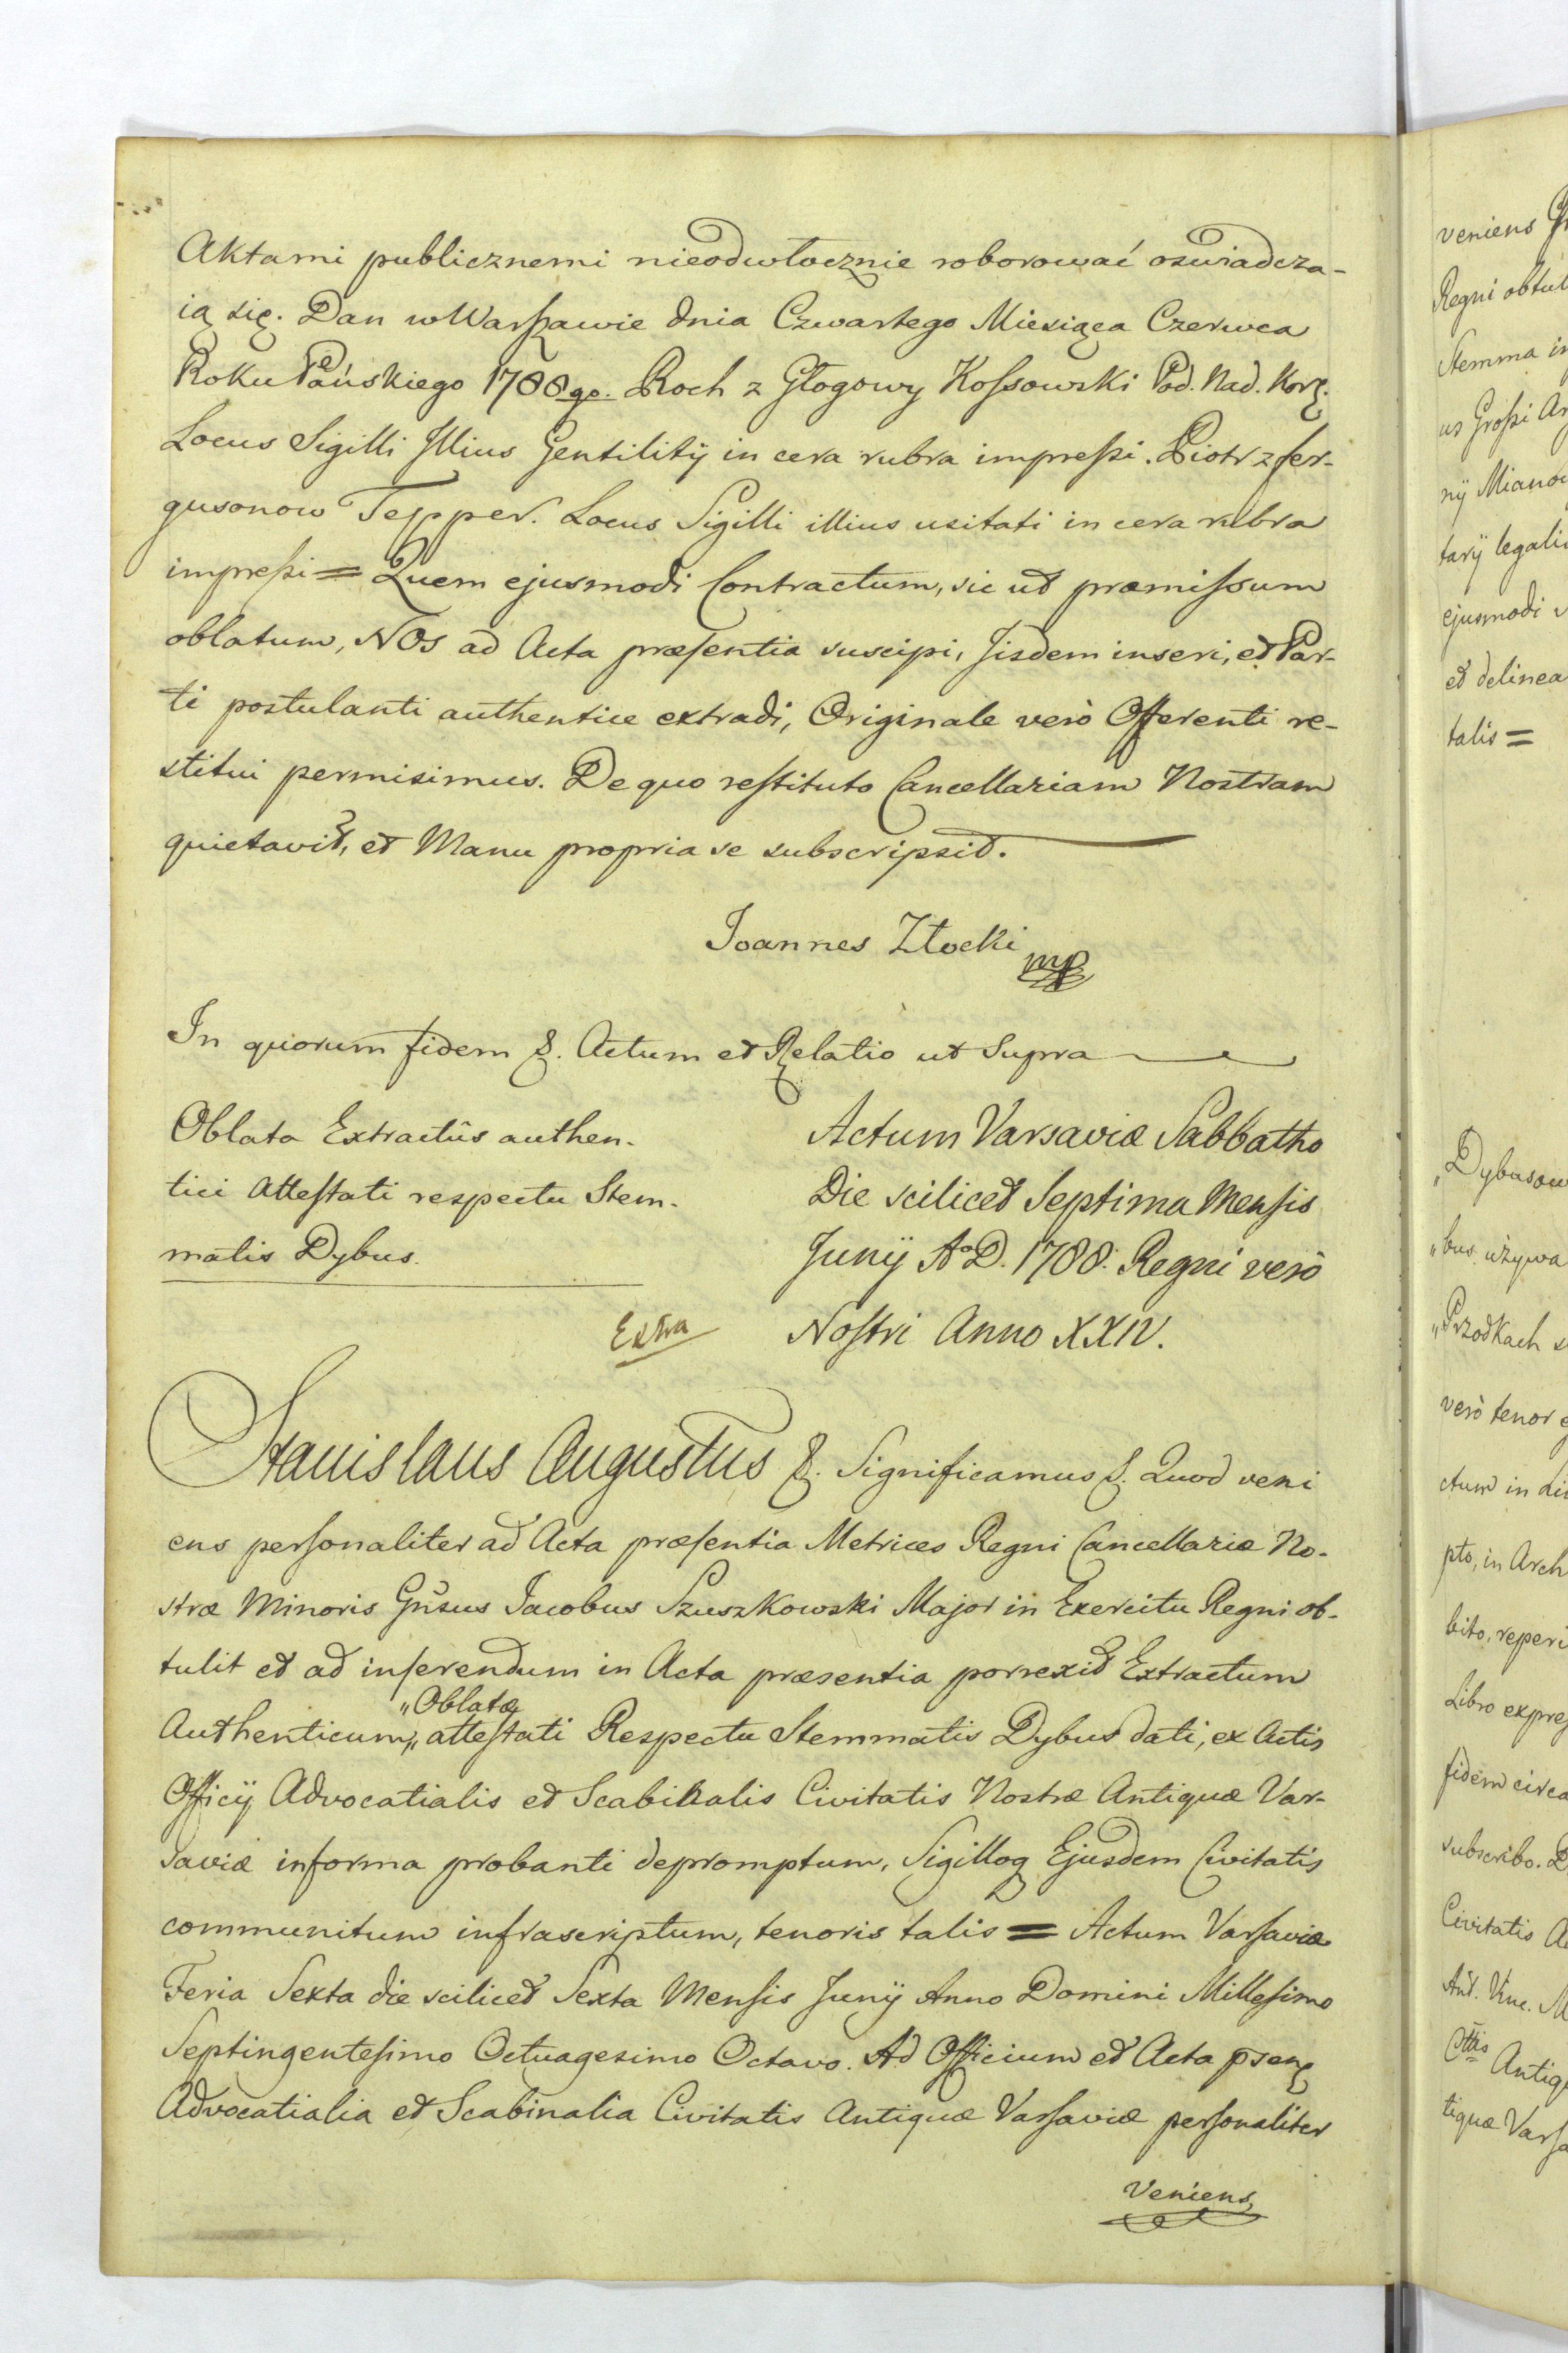 Aktami publicznemi nieodwłocznie roborować oswiadcza-
ią się. Dan w Warszawie dnia Czwartego Miesiąca Czerwca
Roku Pańskiego 1788go. Roch z Głogowy Kossowski Pod. Nad. Kor.
Locus Sigilli Illius Gentilitij in cera rubra impressi. Piotr z fer-
gusonow Tepper. Locus Sigilli illius usitati in cera rubra
impressi = Quem ejusmodi Contractum, sic ut præmissum
oblatum, NOs ad Acta præsentia suscipi, Iisdem inseri, et Par-
ti postulanti authentice extradi, Originale verò Offerenti re-
stitui permisimus. De quo restituto Cancellariam Nostram
quietavit, et Manu propria se subscripsit.
Joannes Złocki mp
In quorum fidem &. Actum et Relatio ut Supra
Oblata Extractûs authen-
tici Attestati respectu Stem-
matis Dybus.
Actum Varsaviæ Sabbatho
Die scilicet Septima Mensis
Junij A°D. 1788. Regni verò
Nostri Anno XXIV.
Extra
Stanislaus Augustus &. Significamus &. Quod veni
ens personaliter ad Acta præsentia Metrices Regni Cancellariæ No-
stræ Minoris Gnsus Jacobus Szuszkowski Major in Exercitu Regni ob-
tulit et ad inserendum in Acta præsentia porrexit Extractum
"Oblatæ
Authenticum,, attestati Respectu Stemmatis Dybus dati, ex Actis
Officij Advocatialis et Scabinalis Civitatis Nostræ Antiquæ Var-
saviæ informa probanti depromptum, Sigilloq Ejusdem Civitatis
communitum infrascriptum, tenoris talis = Actum Varsaviæ
Feria Sexta die scilicet Sexta Mensis Junij Anno Domini Millesimo
Septingentesimo Octuagesimo Octavo. Ad Officium et Acta psen
Advocatialia et Scabinalia Civitatis Antiquæ Varsaviæ personaliter
Veniens,
veniens
Regni obtul
Stemma in
us Grossi
nij Miano
tarij legali
ejusmodi
et delinea
talis =
"Dybusow
"bus używa
"Przodkach
verò tenor
ctum in Li
pto, in Arch
bito, reperi
Libro expres
fidem circa
subscribo.
Civitatis
Antiq
tiquæ Varsa